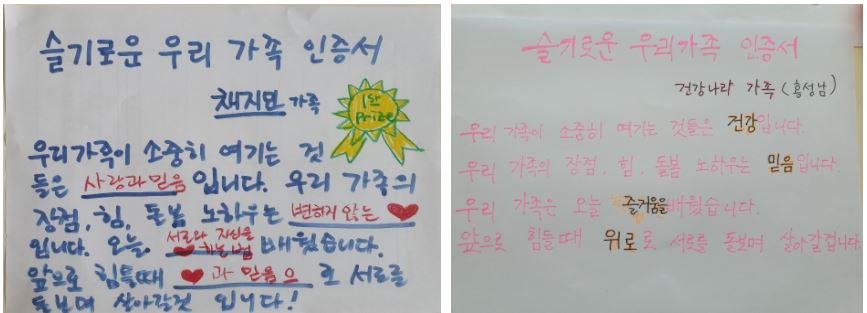 슬기로운 우리 가족 인증서
채지민 가족
1st
prize
우리가족이 소중히 여기는 것
들은 사랑과믿음 입니다. 우리 가족의
장점, 힘, 돌봄 노하우는 변하지 않는 ♥
입니다. 오늘. 서로와 자신을
♥ 하는 법 배웠습니다.
앞으로 힘들때 ♥ 과 믿음으 로 서로를
돌보며 살아갈것 입니다!
슬기로운 우리가족 인증서
건강나라 가족 (홍성남)
우리 가족이 소중히 여기는 것들은 건강입니다.
우리 가족의 장점, 힘, 돌봄 노하우는 믿음입니다.
우리 가족은 오늘 즐거움을배웠습니다.
앞으로 힘들때 위로로 서로를 돌보며 살아갈겁니다.